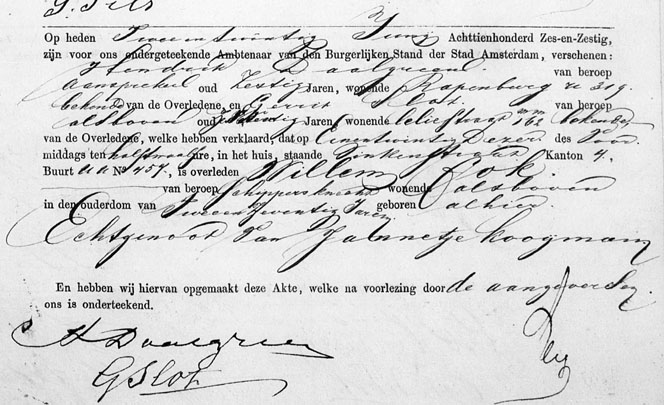 Op heden Tweeentwintig Juny Achttienhonderd Zes-en-Zestig,
zijn voor ons ondergeteekende Ambtenaar van den Burgerlijken Stand der Stad Amsterdam, verschenen:
Hendrik Daalgreen van beroep
aanspreker oud zestig Jaren, wonende Rapenburg N 319
bekende van de Overledene, en Gerrit Slot van beroep
alsboven oud Jaren, wonende bekende
van de Overledene, welke hebben verklaard, dat op Eenentwintig Dezer des Voor
middags ten half ure, in het huis, staande Kanton 4.
Buurt UU No 457, is overleden Willem Kok
van beroep Schippersknecht wonende alsboven
in den ouderdom van Tweeenzeventig Jaren geboren alhier
Echtgenoot van Jannetje Koogman
En hebben wij hiervan opgemaakt deze Akte, welke na voorlezing door de aangevers en
ons is onderteekend.
H Daalgreen
G Slot